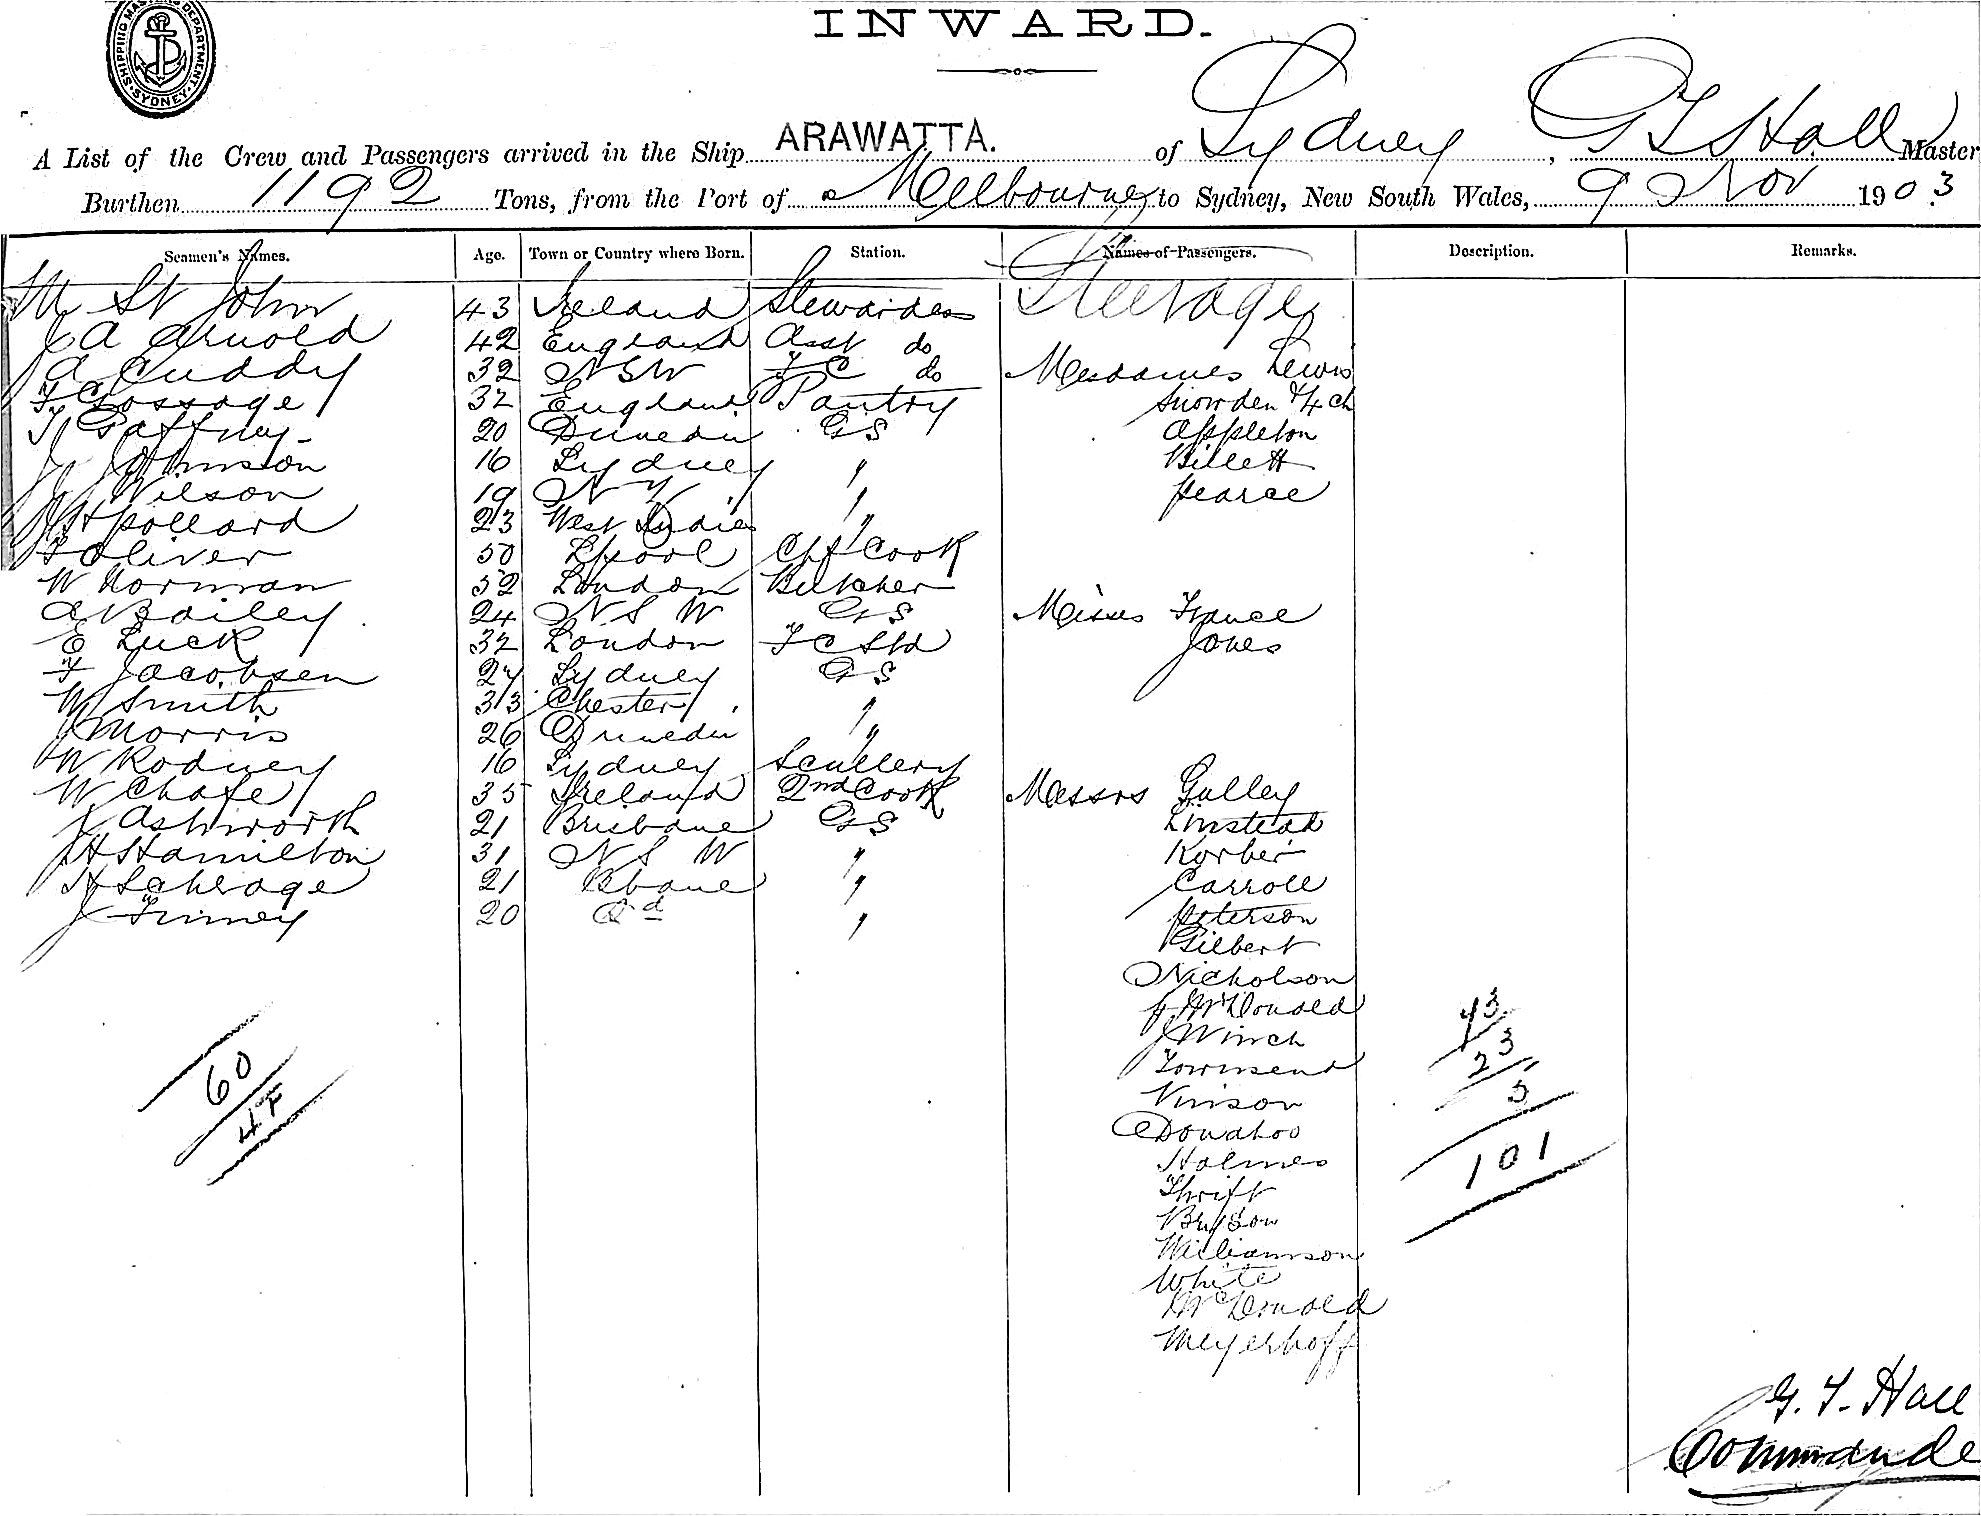 SHIPPING MASTERS DEPARTMENT
SYDNEY
INWARD.
A List of the Crew and Passengers arrived in the Ship ARAWATTA. of Sydney, G T Hall Master
Burthen 1192 Tons, from the Port of Melbourne to Sydney, New South Wales, 9 Nov 1903
Seamen's Names. Age. Town or Country where Born. Station. Names of Passengers. Description. Remarks.
M St John 43 Ireland Stewardess Steerage
A Arnold 42 England Asst do
A Cuddy 32 N S W F C do Mesdames Lewis
F Gossage 32 England Pantry Snowden & 4 ch
T Gaffney 20 Dunedin G S Appleton
J Johnson 16 Sydney " Billett
J Wilson 19 N Z " Pearce
H Pollard 23 West Indies "
F Oliver 50 Lpool Chf Cook
W Norman 52 London Butcher
A Bailey 24 N S W G S Misses France
E Luck 32 London F C Std Jones
F Jacobsen 27 Sydney G S
W Smith 33 Chester "
J Morris 26 Dunedin "
W Rodney 16 Sydney Scullery
W Chafe 35 Ireland 2nd Cook Messrs Gulley
J Ashworth 21 Brisbane G S Linstead
H Hamilton 31 N S W " Korber
H Schrage 21 Bbane " Carroll
J Finney 20 Qd " Peterson
Gilbert
Nicholson
McDonald
J Winch
Townsend
Vinson
Donahoo
Holmes
Thrift
Bryson
Williamson
White
McDonald
Meyerhoff
60
47
43
23
101
G. T. Hall
Commande